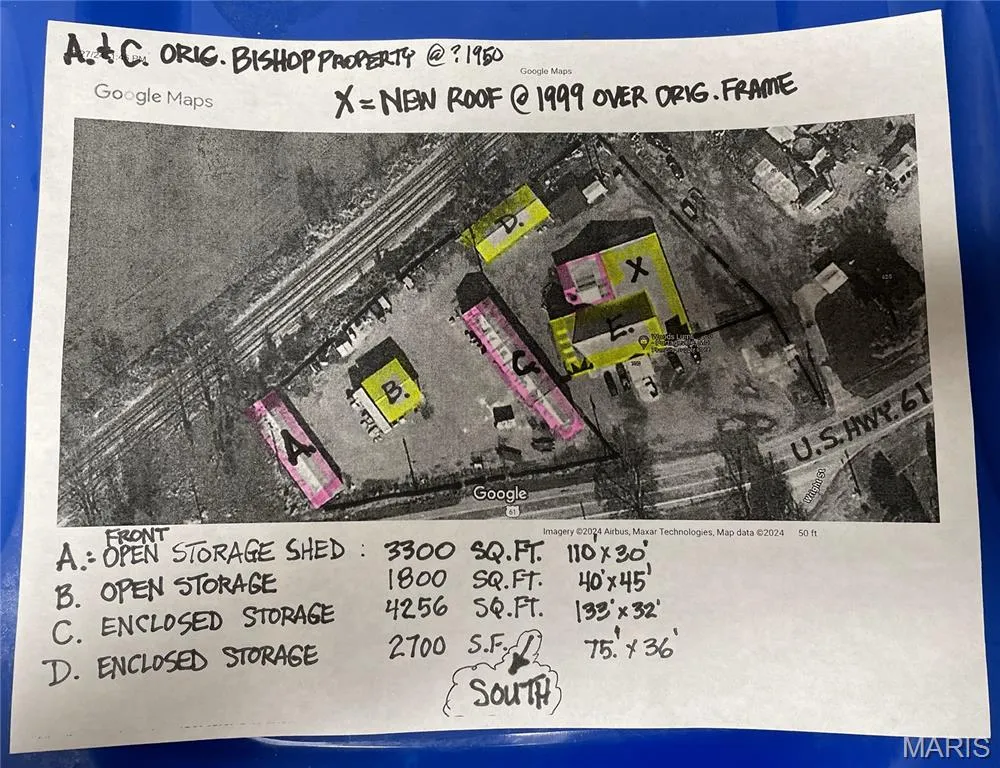 A. & C. ORIG. BISHOP PROPERTY @ ? 1950
Google Maps
Google Maps
X = NEW ROOF @ 1999 OVER ORIG. FRAME
D.
X
E.
C
B.
A
3
U.S. HWY. 61
Wright St
Google
61
Imagery ©2024 Airbus, Maxar Technologies, Map data ©2024 50 ft
FRONT
A.: OPEN STORAGE SHED : 3300 SQ.FT. 110' X 30'
B. OPEN STORAGE 1800 SQ.FT. 40' X 45'
C. ENCLOSED STORAGE 4256 SQ.FT. 133' X 32'
D. ENCLOSED STORAGE 2700 S.F. 75.' X 36'
SOUTH
MARIS